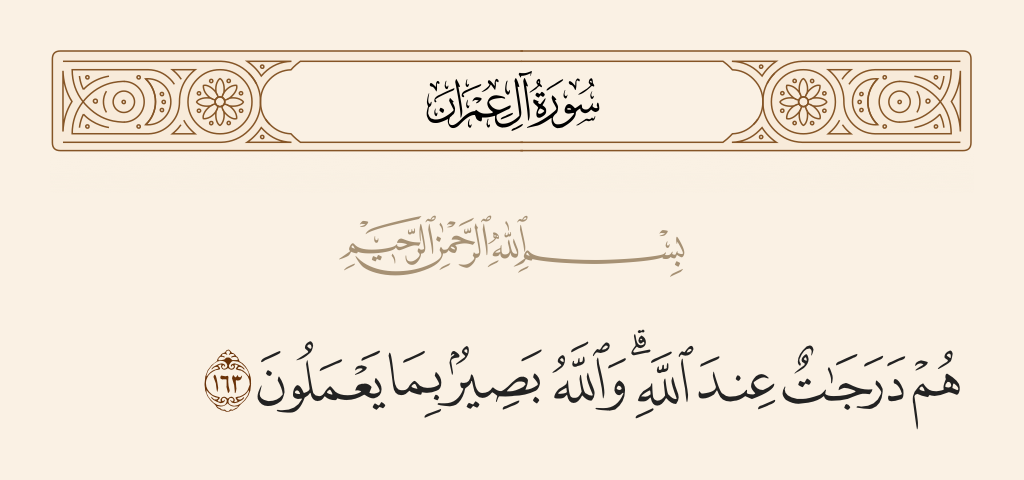 سُورَةُ آلِ عِمْرَان
بِسْمِ ٱللَّهِ ٱلرَّحْمَٰنِ ٱلرَّحِيمِ
هُمْ دَرَجَٰتٌ عِندَ ٱللَّهِ ۗ وَٱللَّهُ بَصِيرٌۢ بِمَا يَعْمَلُونَ ١٦٣